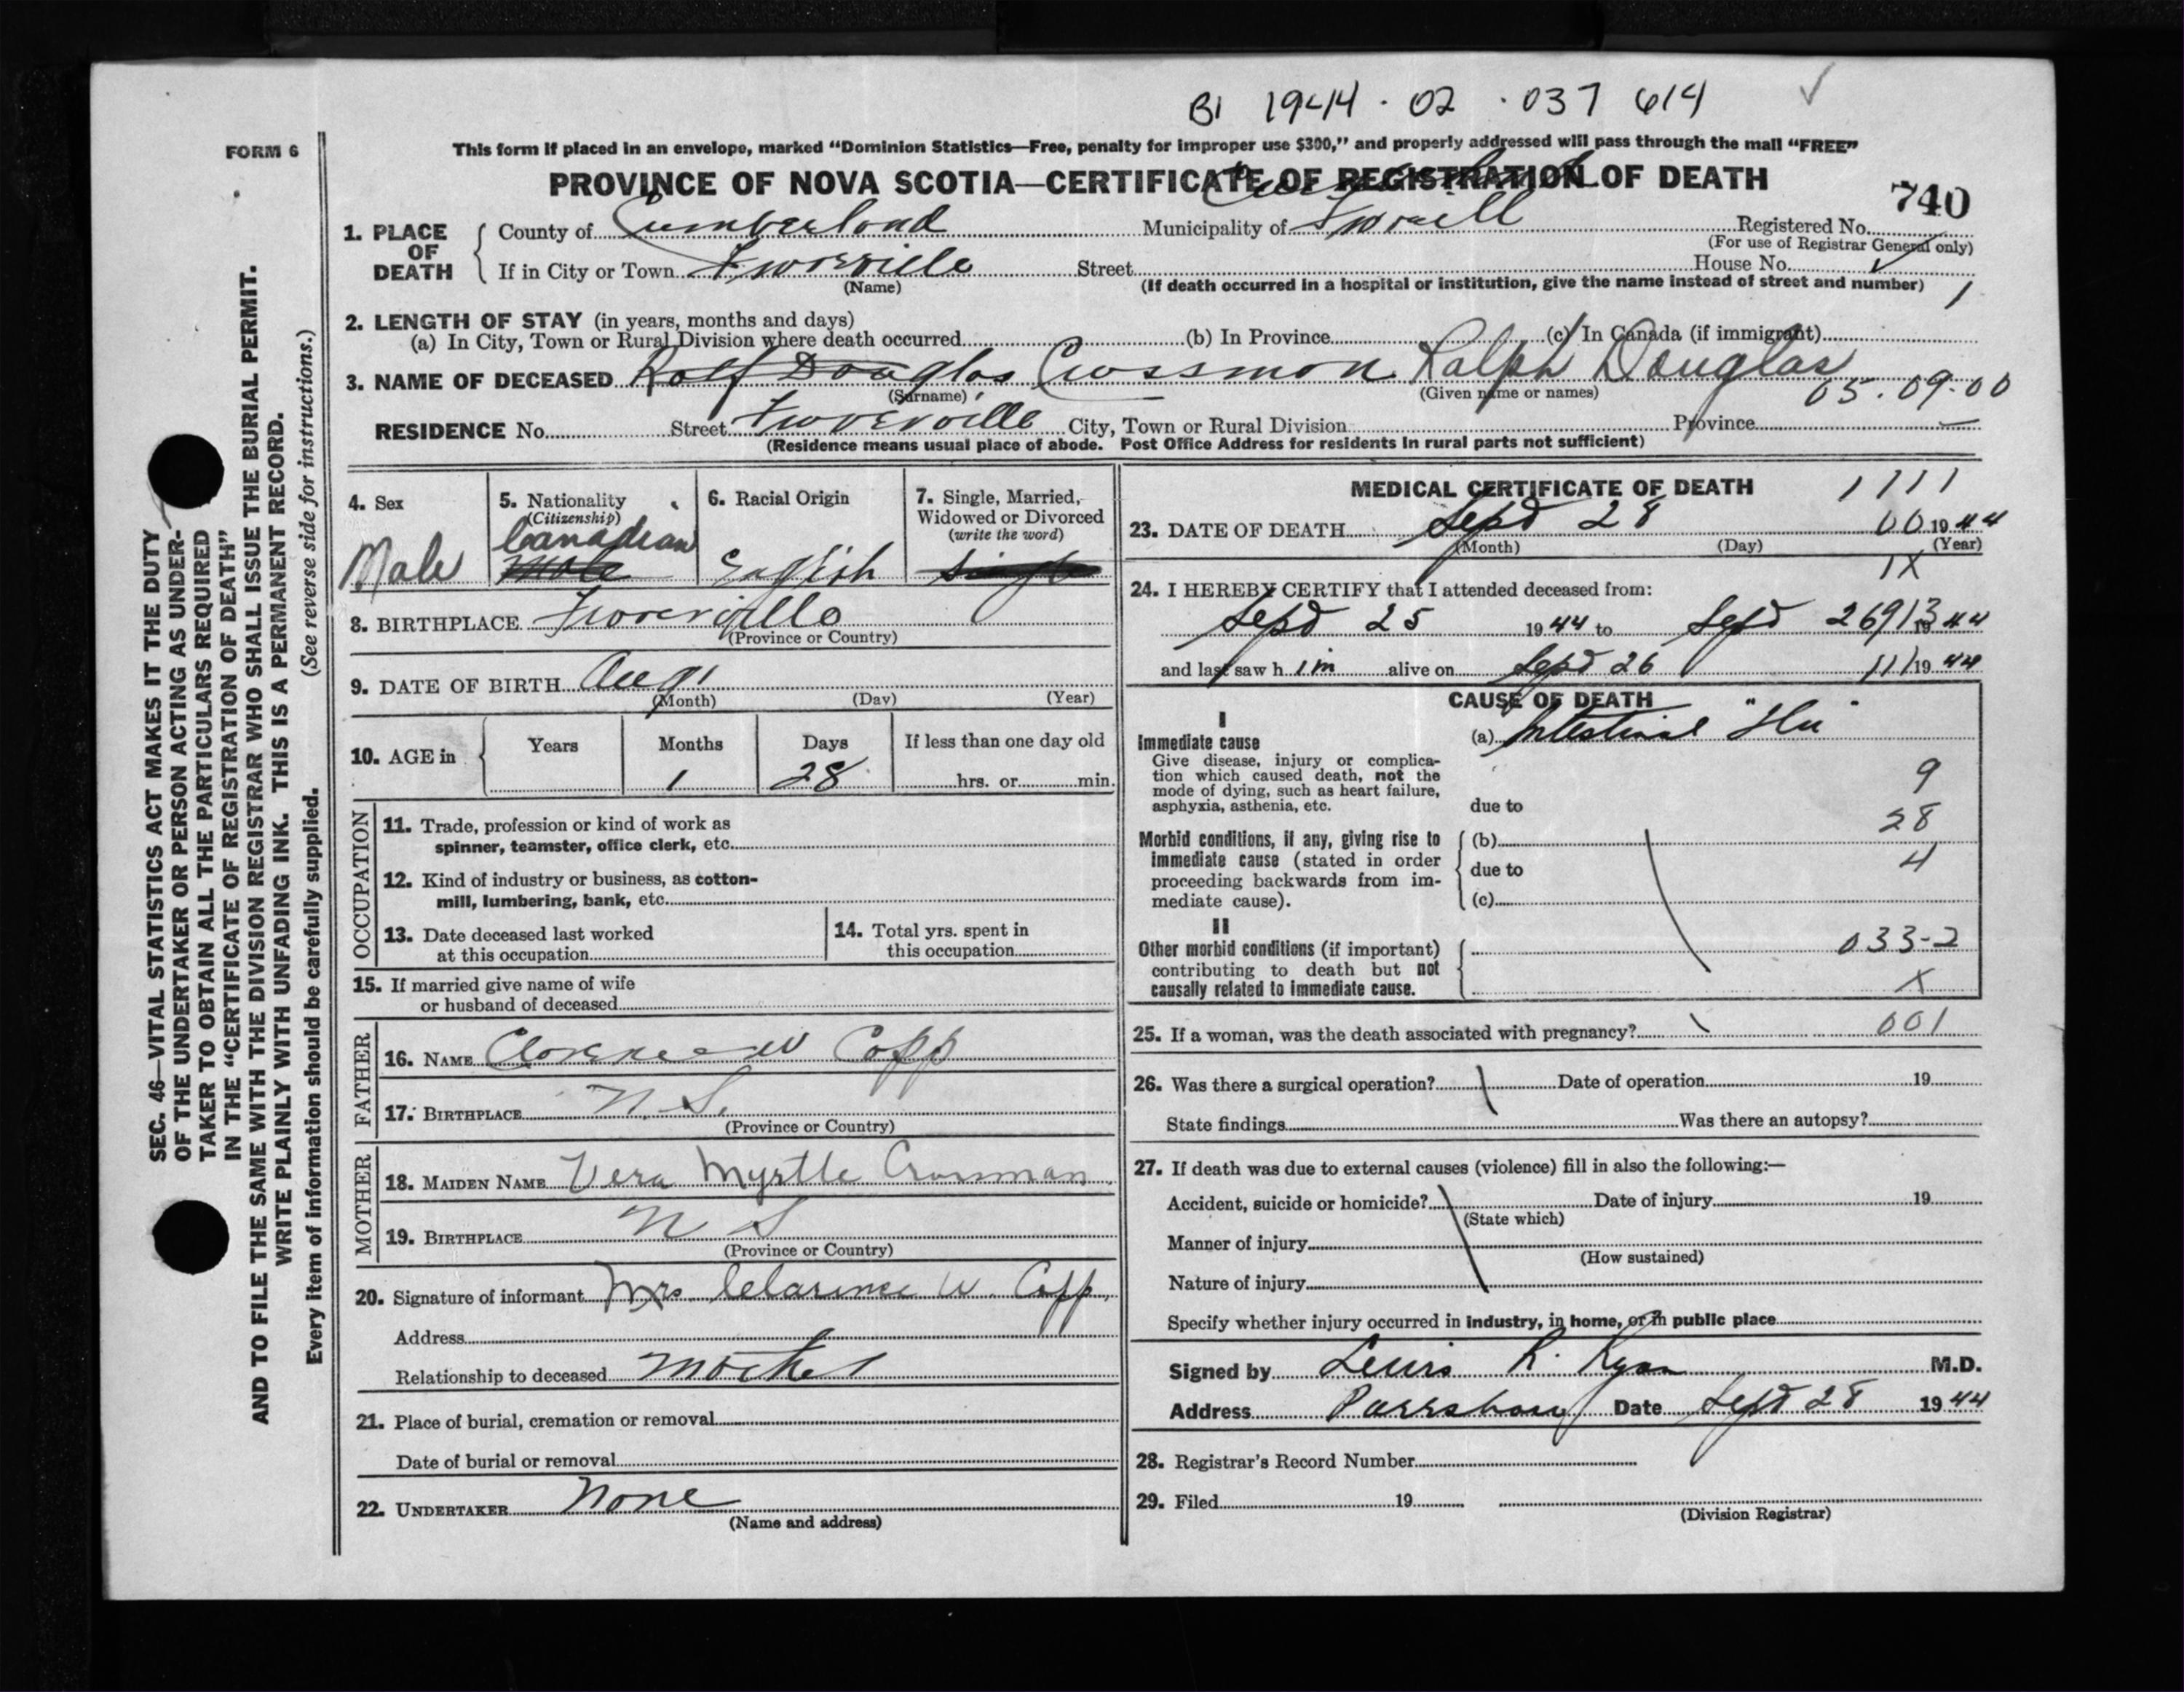 BI 1944 . 02 . 037 614 ✓
FORM 6
This form if placed in an envelope, marked “Dominion Statistics—Free, penalty for improper use $300,” and properly addressed will pass through the mail “FREE”
PROVINCE OF NOVA SCOTIA—CERTIFICATE OF REGISTRATION OF DEATH
740
1. PLACE OF DEATH
County of Cumberland Municipality of Registered No.
(For use of Registrar General only)
If in City or Town Street House No. ✓
(Name) (If death occurred in a hospital or institution, give the name instead of street and number) 1
2. LENGTH OF STAY (in years, months and days)
(a) In City, Town or Rural Division where death occurred (b) In Province (c) In Canada (if immigrant)
3. NAME OF DECEASED Rolf Douglas Crossman Ralph Douglas
(Surname) (Given name or names) 05.09.00
RESIDENCE No. Street City, Town or Rural Division Province
(Residence means usual place of abode. Post Office Address for residents in rural parts not sufficient)
4. Sex Male
5. Nationality (Citizenship) Canadian Male
6. Racial Origin English
7. Single, Married, Widowed or Divorced (write the word) Single
8. BIRTHPLACE
(Province or Country)
9. DATE OF BIRTH Aug 1
(Month) (Day) (Year)
10. AGE in Years Months 1 Days 28 If less than one day old hrs. or min.
OCCUPATION
11. Trade, profession or kind of work as
spinner, teamster, office clerk, etc.
12. Kind of industry or business, as cotton-
mill, lumbering, bank, etc.
13. Date deceased last worked
at this occupation
14. Total yrs. spent in
this occupation
15. If married give name of wife
or husband of deceased
FATHER
16. NAME Clarence W Copp
17. BIRTHPLACE N. S.
(Province or Country)
MOTHER
18. MAIDEN NAME Vera Myrtle Crossman
19. BIRTHPLACE N S
(Province or Country)
20. Signature of informant Mrs. Clarence W. Copp,
Address
Relationship to deceased Mother
21. Place of burial, cremation or removal
Date of burial or removal
22. UNDERTAKER None
(Name and address)
MEDICAL CERTIFICATE OF DEATH 1111
23. DATE OF DEATH Sept 28 00 1944
(Month) (Day) (Year)
1X
24. I HEREBY CERTIFY that I attended deceased from:
Sept 25 1944 to Sept 26 913 1944
and last saw h im alive on Sept 26 111 1944
CAUSE OF DEATH
I
Immediate cause
Give disease, injury or complica-
tion which caused death, not the
mode of dying, such as heart failure,
asphyxia, asthenia, etc.
(a) Intestinal "Flu"
9
due to
28
Morbid conditions, if any, giving rise to
immediate cause (stated in order
proceeding backwards from im-
mediate cause).
(b)
due to 4
(c)
II
Other morbid conditions (if important)
contributing to death but not
causally related to immediate cause.
033-2
X
25. If a woman, was the death associated with pregnancy? 001
26. Was there a surgical operation? Date of operation 19
State findings Was there an autopsy?
27. If death was due to external causes (violence) fill in also the following:—
Accident, suicide or homicide? Date of injury 19
(State which)
Manner of injury
(How sustained)
Nature of injury
Specify whether injury occurred in industry, in home, or in public place
Signed by Lewis R. Ryan M.D.
Address Parrsboro Date Sept 28 1944
28. Registrar's Record Number
29. Filed 19
(Division Registrar)
SEC. 46—VITAL STATISTICS ACT MAKES IT THE DUTY
OF THE UNDERTAKER OR PERSON ACTING AS UNDER-
TAKER TO OBTAIN ALL THE PARTICULARS REQUIRED
IN THE “CERTIFICATE OF REGISTRATION OF DEATH”
AND TO FILE THE SAME WITH THE DIVISION REGISTRAR WHO SHALL ISSUE THE BURIAL PERMIT.
WRITE PLAINLY WITH UNFADING INK. THIS IS A PERMANENT RECORD.
Every item of information should be carefully supplied. (See reverse side for instructions.)